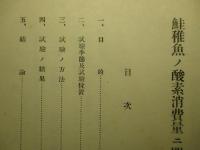 鮭稚魚ノ酸素消費量ニ
目次
一、目的
二、試験季節及試験装置
三、試験ノ方法
四、試験ノ結果
五、結論